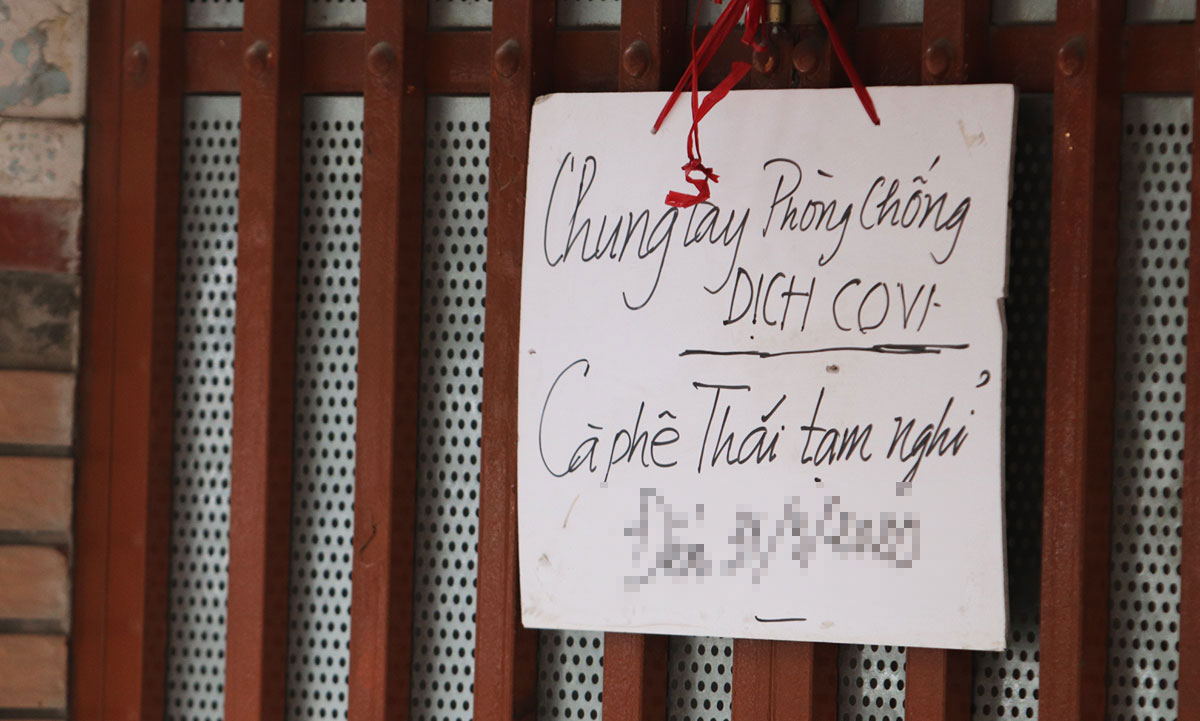 Chung tay Phòng Chống
DỊCH COVI
Cà phê Thái tạm nghỉ